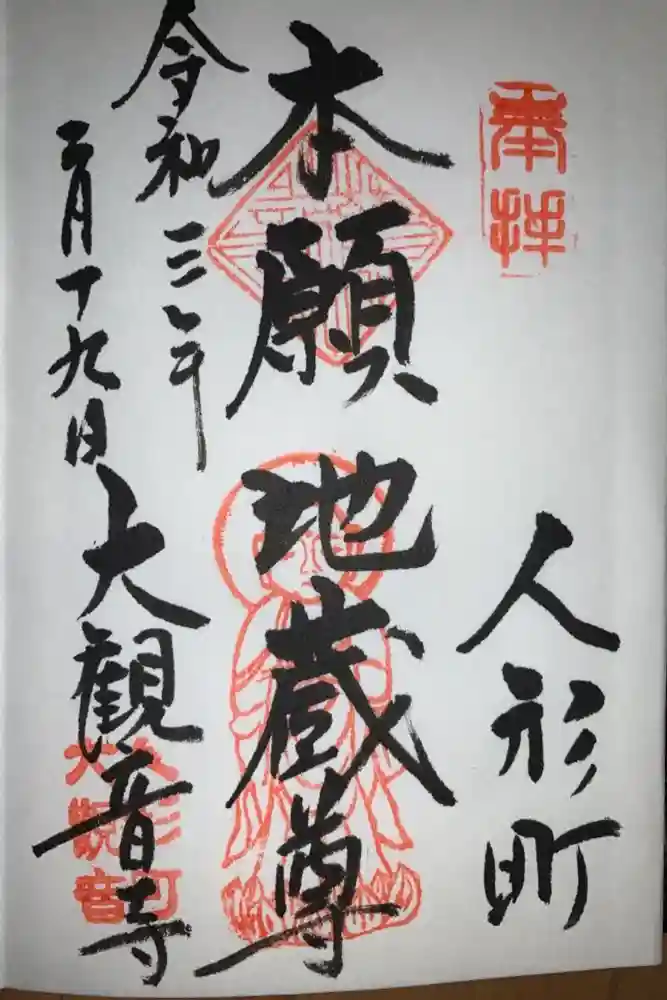 奉拝
人形町
本願地蔵尊
令和三年
三月十九日
大観音寺
人形町
大観音